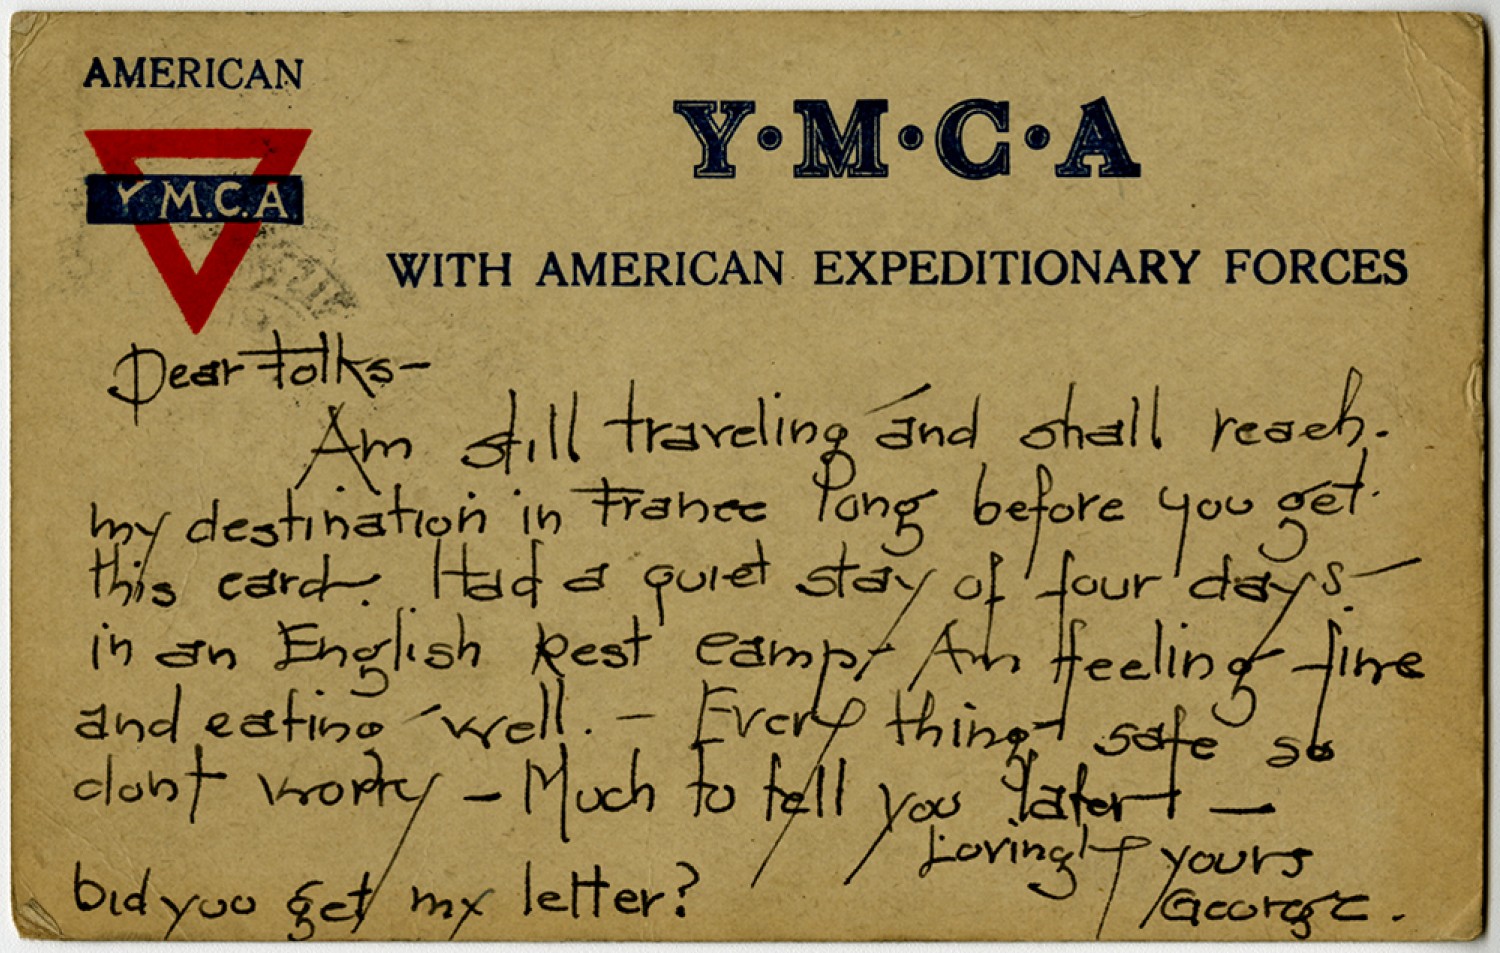 AMERICAN
Y.M.C.A.
Y·M·C·A
WITH AMERICAN EXPEDITIONARY FORCES
Dear Folks—
Am still traveling and shall reach
my destination in France long before you get
this card. Had a quiet stay of four days—
in an English Rest camp, Am feeling fine
and eating well. — Every thing safe so
dont worry — Much to tell you later —
Lovingly yours
Did you get my letter?
George.